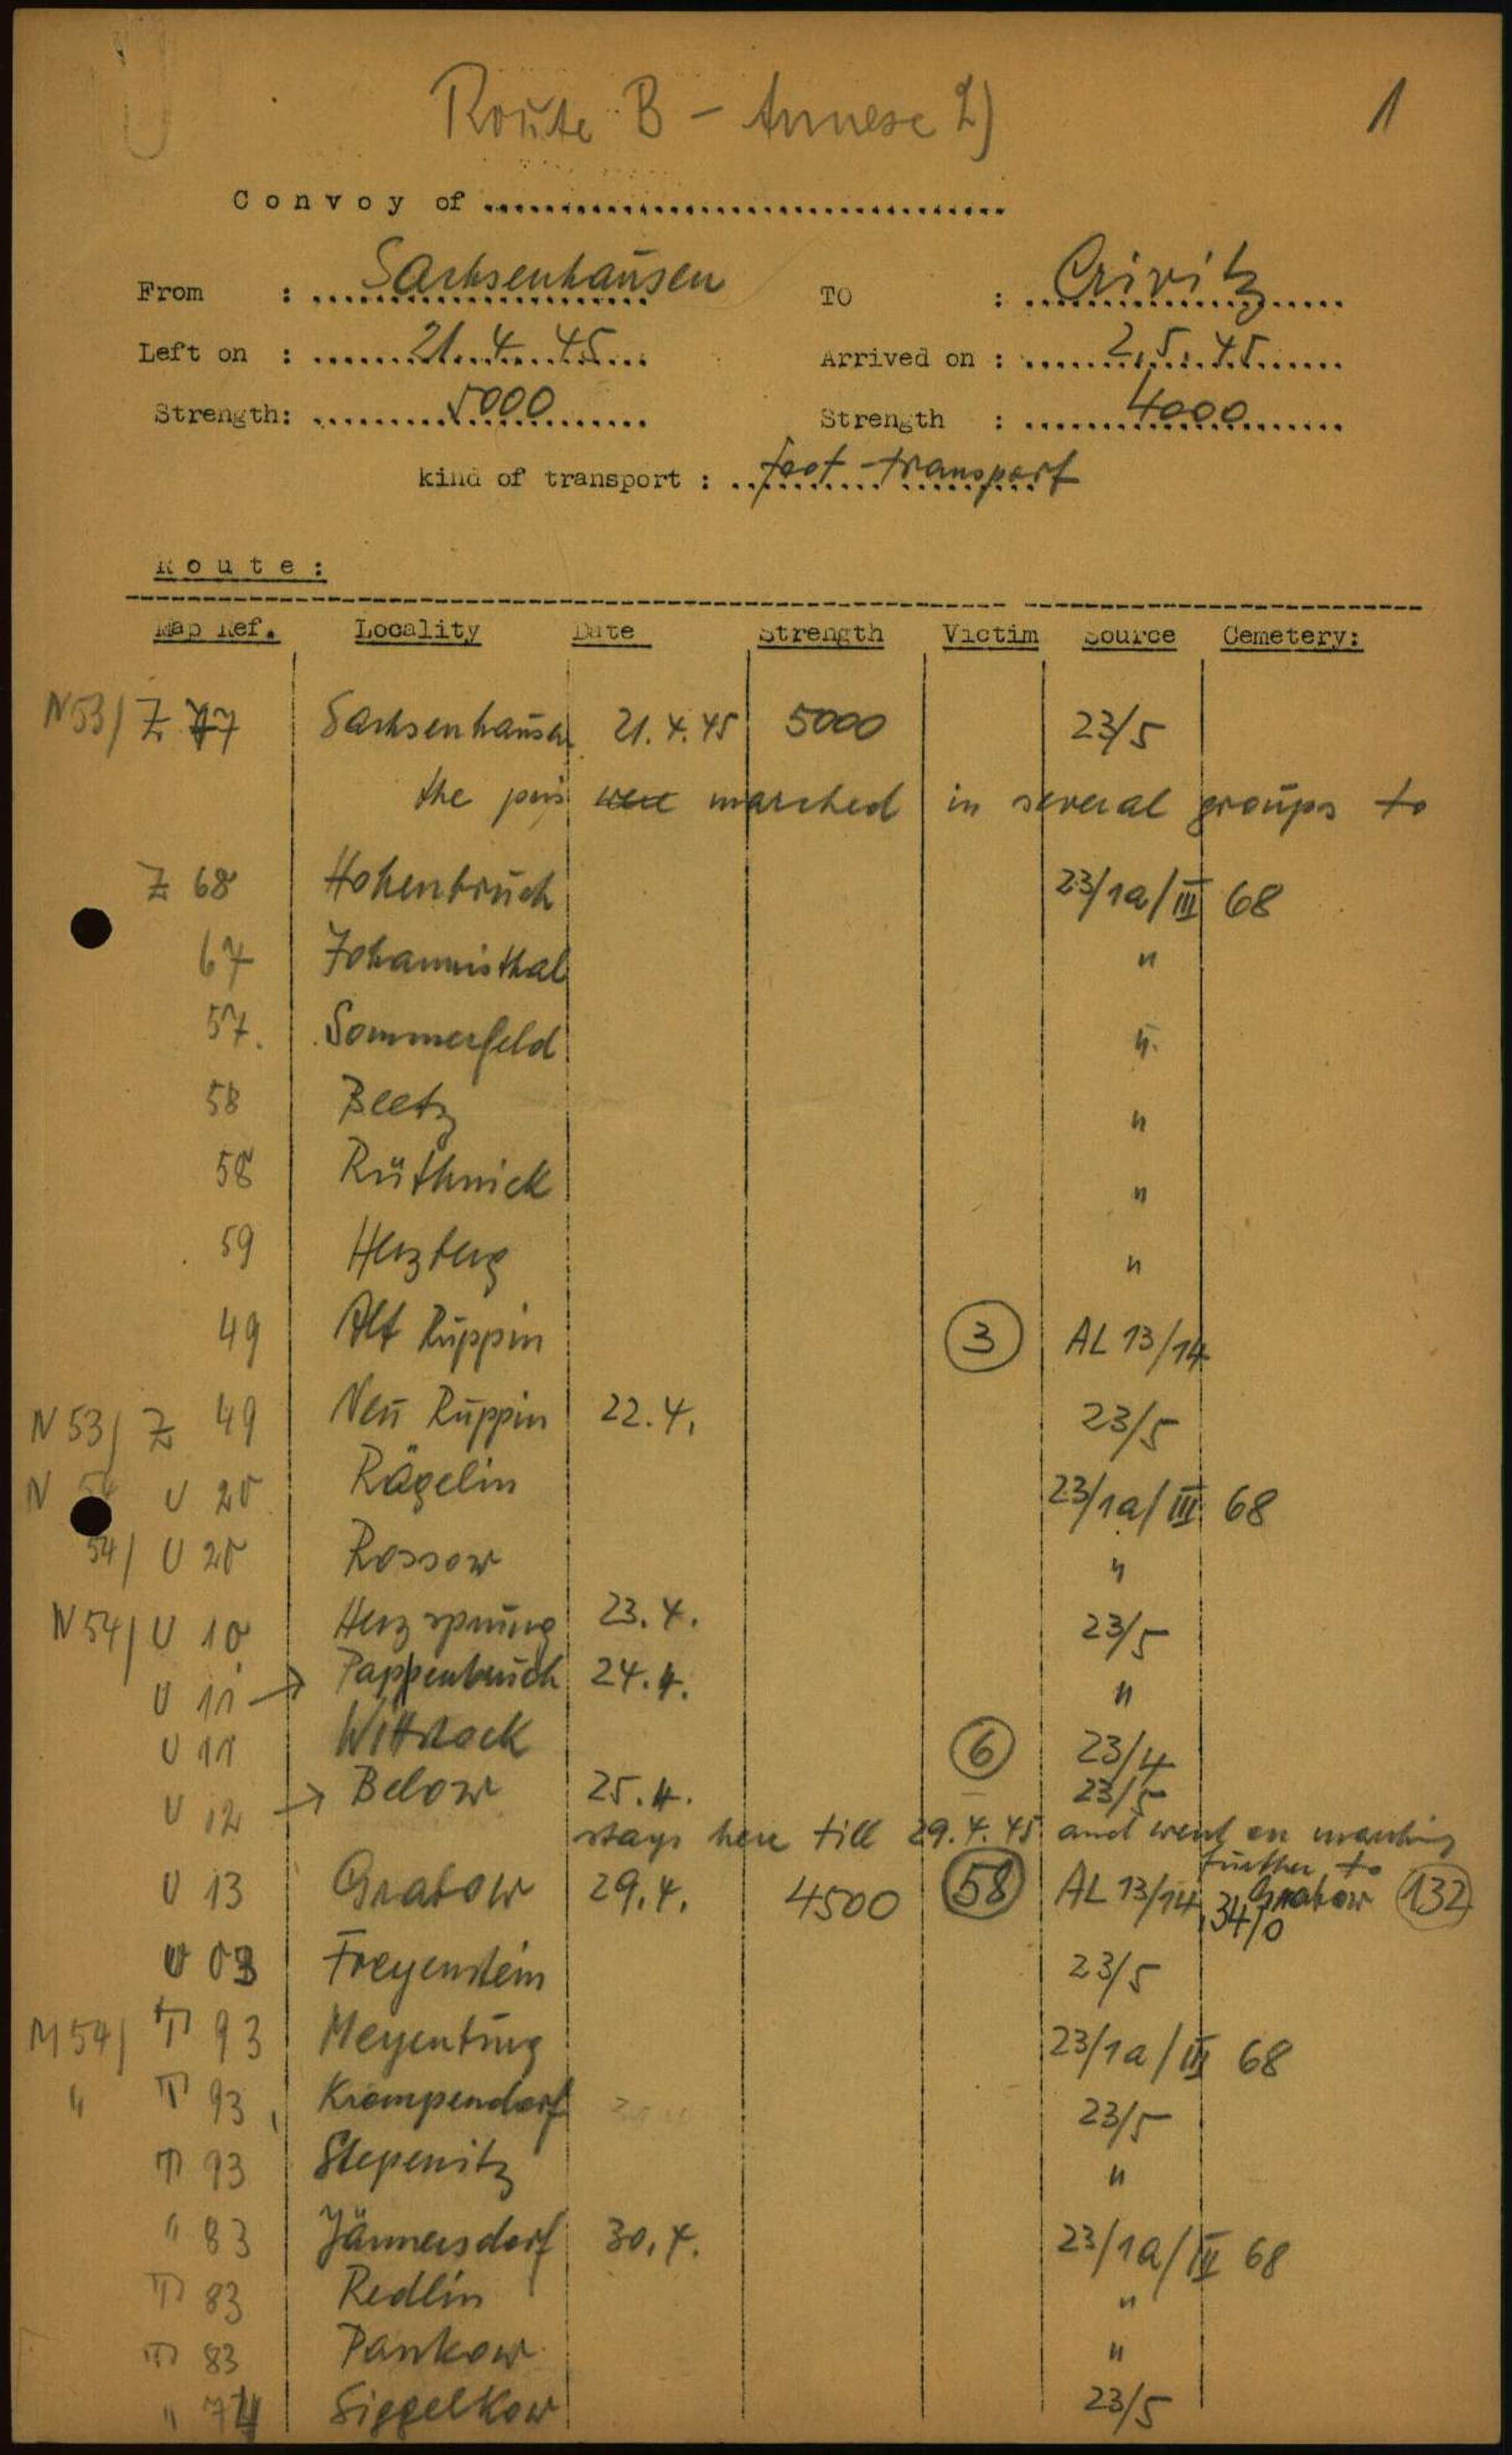 Route B - Annexe 2)
1
Convoy of ........................................
From : Sachsenhausen TO : Crivitz
Left on : 21.4.45 Arrived on : 2.5.45
Strength: 5000 Strength : 4000
kind of transport : foot-transport
Route:
Map Ref. Locality Date Strength Victim Source Cemetery:
N53/ Z 77 Sachsenhausen 21.4.45 5000 23/5
the pris were marched in several groups to
Z 68 Hohenbruch 23/1a/III 68
67 Johannisthal "
57. Sommerfeld "
58 Beetz "
58 Rüthnick "
59 Herzberg "
49 Alt Ruppin 3 AL 13/14
N 53/ Z 49 Neu Ruppin 22.4. 23/5
N 54 U 20 Rägelin 23/1a/III 68
54/ U 20 Rossow "
N54/ U 10 Herzsprung 23.4. 23/5
U 11 → Pappenbruch 24.4. "
U 11 Wittstock 6 23/4
U 12 → Below 25.4. 23/5
stays here till 29.4.45 and went on marching
further to
U 13 Grabow 29.4. 4500 58 AL 13/14, Grabow 132
34/0
U 03 Freyenstein 23/5
M54/ T 93 Meyenburg 23/1a/III 68
" T 93 Krempendorf 23/5
T 93 Stepenitz "
" 83 Jännersdorf 30.4. 23/1a/III 68
T 83 Redlin "
T 83 Pankow "
" 74 Siggelkow 23/5